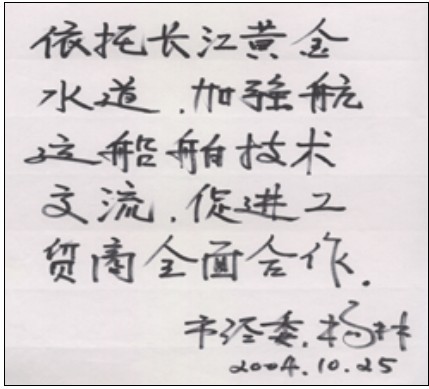 依托长江黄金
水道.加强航
运船舶技术
交流.促进工
贸商全面合作.
市经委.杨林
2004.10.25